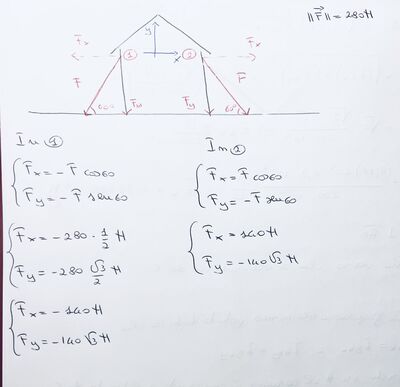 ||F⃗|| = 280 N
y
F̄x
① x ②
F̄x
F̄
F̄y
F̄y
F̄
60°
60°
In ①
F̄x = - F̄ cos60
F̄y = - F̄ sen60
F̄x = - 280 · 1/2 N
F̄y = - 280 √3/2 N
F̄x = - 140 N
F̄y = - 140 √3 N
In ②
F̄x = F̄ cos60
F̄y = - F̄ sen60
F̄x = 140 N
F̄y = - 140 √3 N